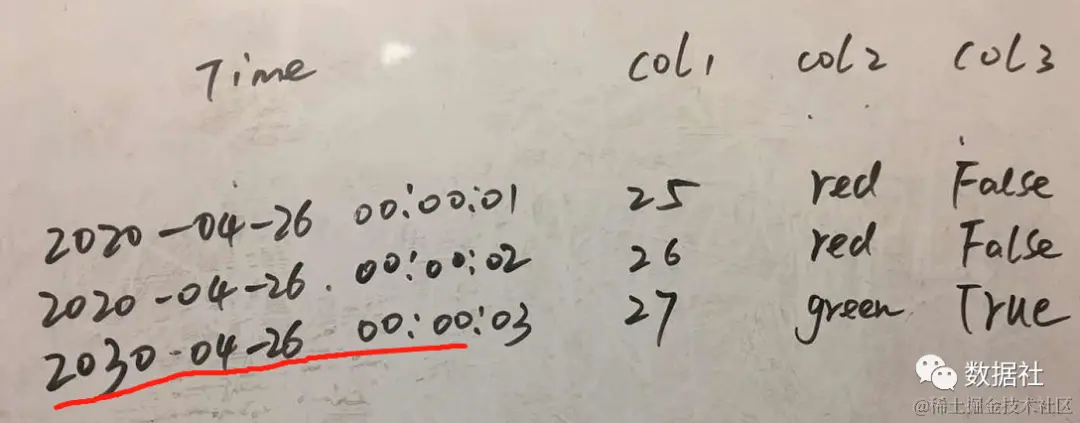 Time col1 col2 col3
2020-04-26 00:00:01 25 red False
2020-04-26 00:00:02 26 red False
2030-04-26 00:00:03 27 green True
数据社
@稀土掘金技术社区